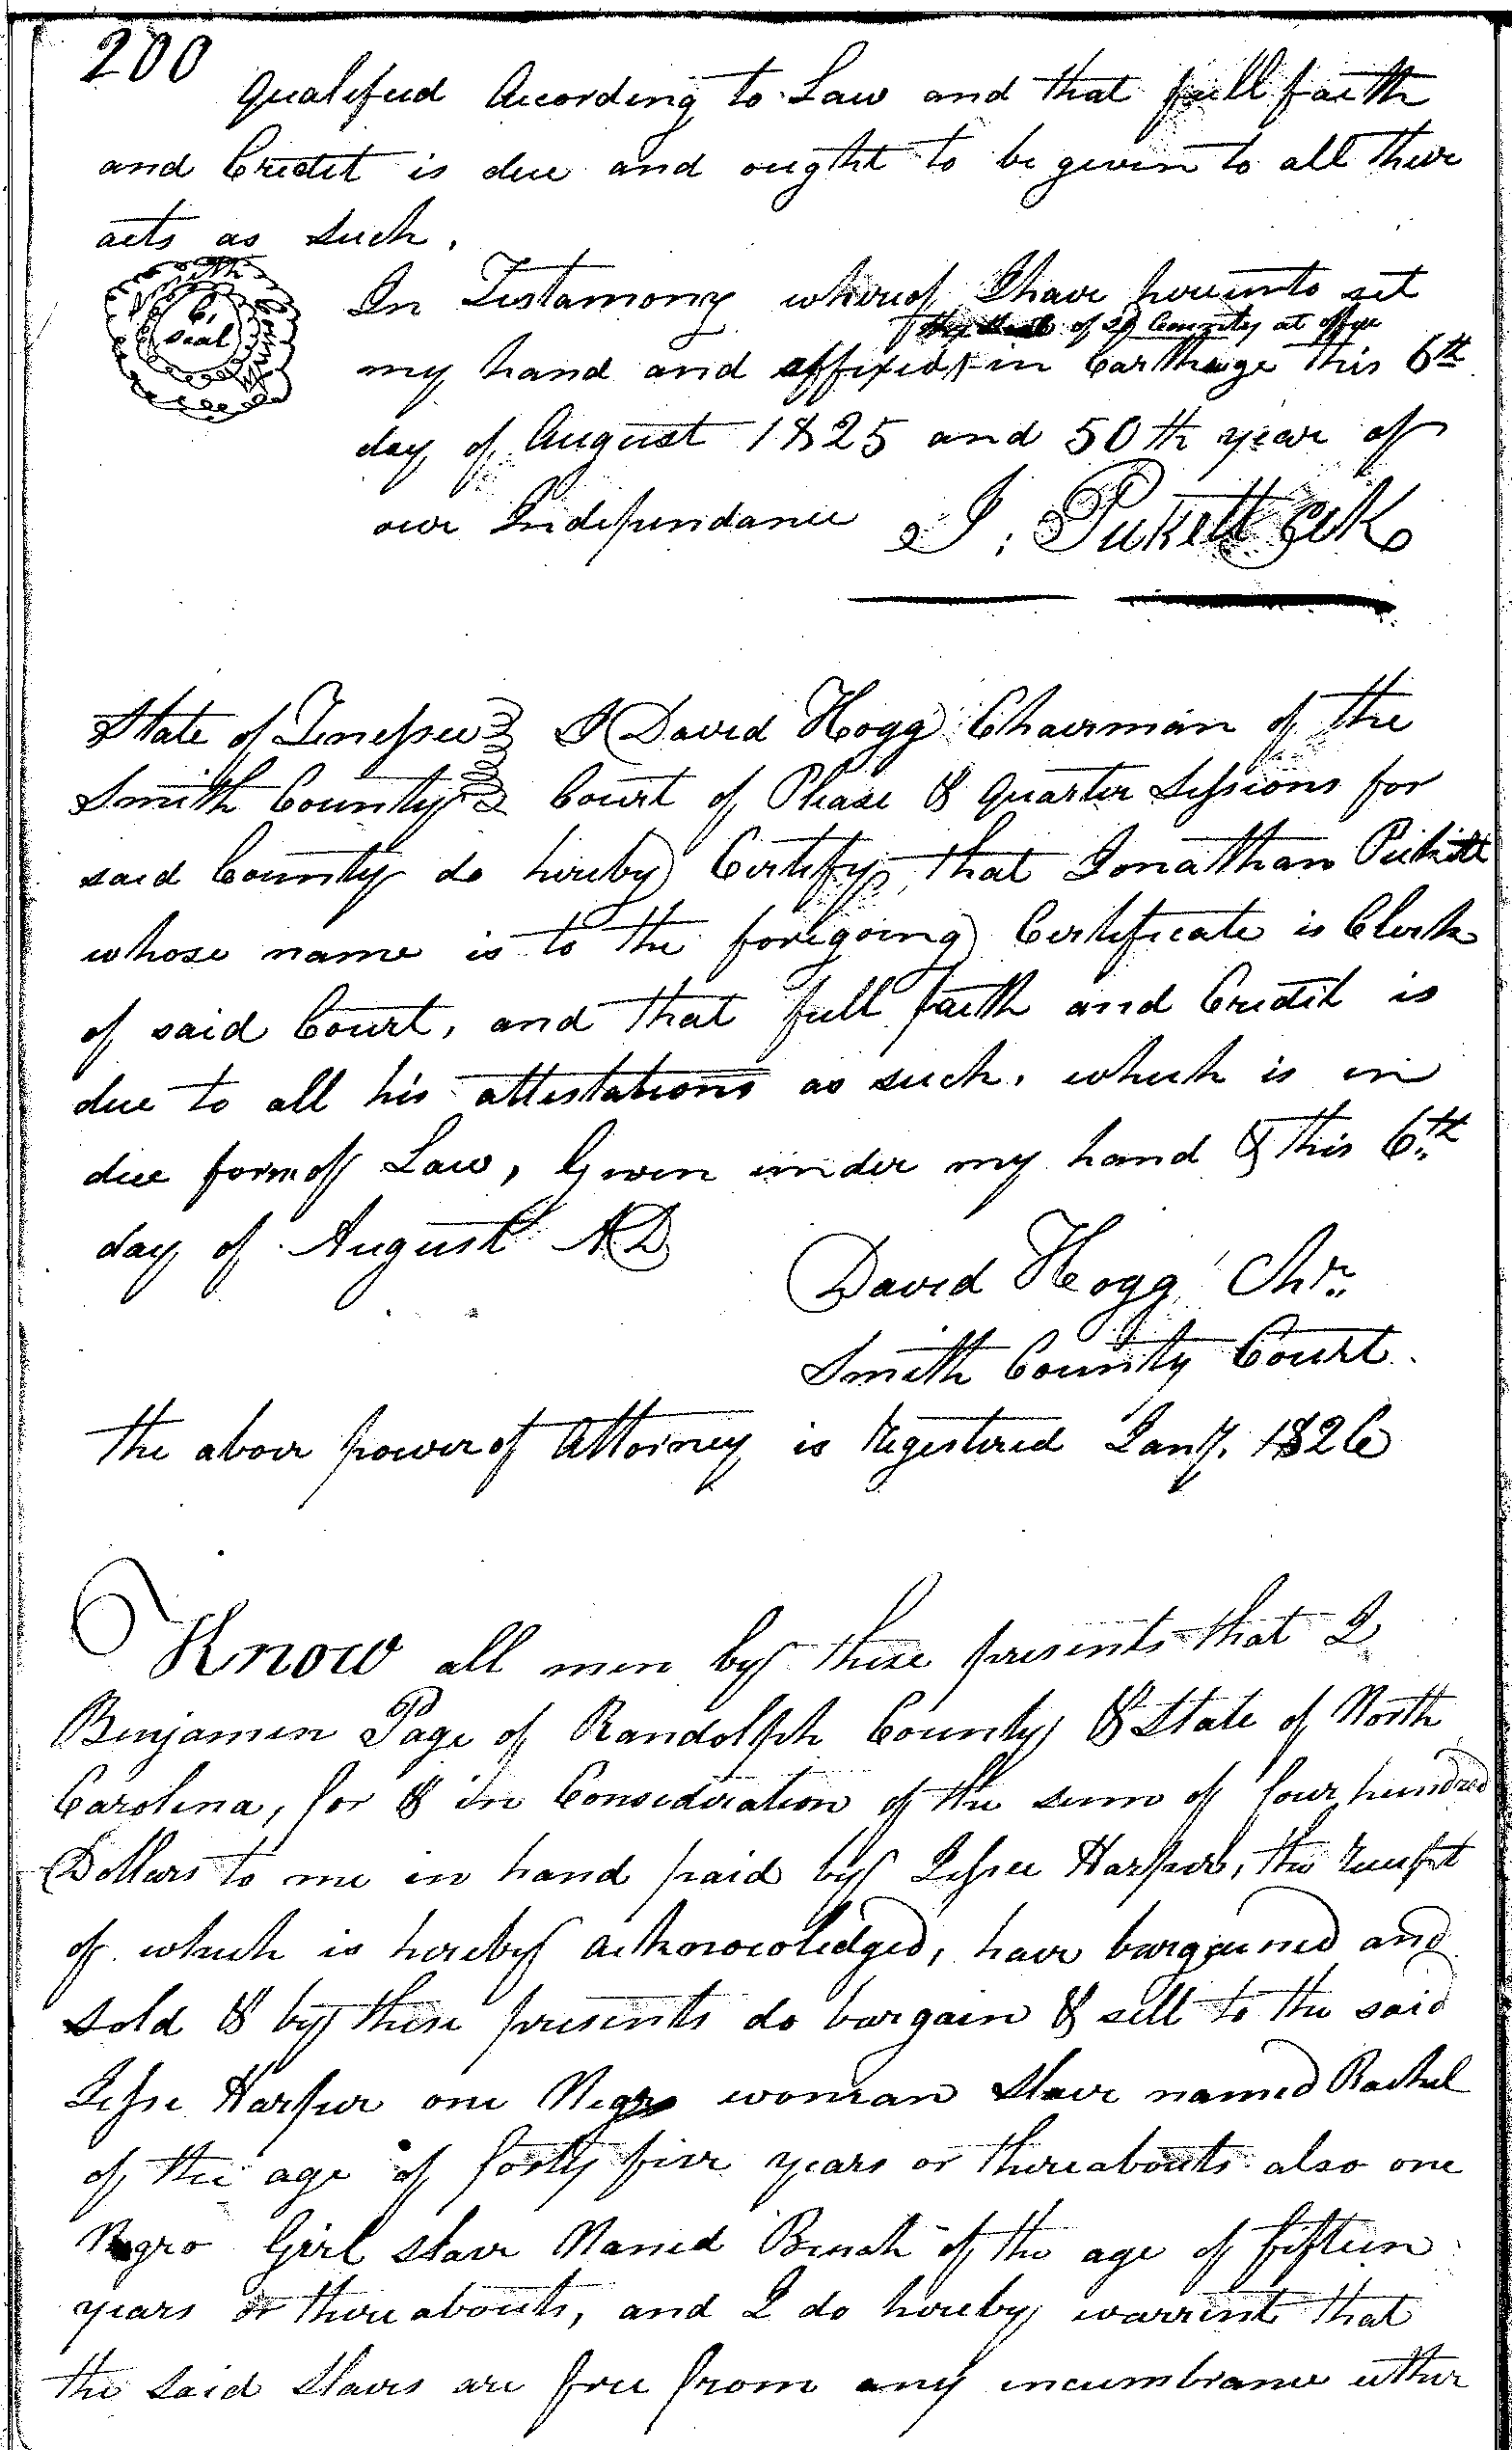 200
qualified According to Law and that full faith
and Credit is due and ought to be given to all their
acts as such.
Smith County
C.
seal
In Testamony whereof I have hereunto set
the seal of sd County at office
my hand and affixed in Carthage this 6th
day of August 1825 and 50th year of
our Independance J. Pickett Clk
State of Tennessee I David Hogg Chairman of the
Smith County Court of Please & quarter Sessions for
said County do hereby Certify that Jonathan Pickett
whose name is to the foregoing Certificate is Clerk
of said Court, and that full faith and Credit is
due to all his attestations as such, which is in
due form off Law, Given under my hand & this 6th
day of August AD
David Hogg Chrn
Smith County Court
the above power of Attorney is registered Jany. 1826
Know all men by these presents that I
Benjamin Page of Randolph County & State of North
Carolina, for & in Consideration of the sum of four hundred
Dollars to me in hand paid by Jesse Harper, the receipt
of which is hereby acknowledged, have bargained and
sold & by these presents do bargain & sell to the said
Jesse Harper one Negro woman slave named Rachel
of the age of forty five years or thereabouts also one
Negro Girl slave Named of the age of fifteen
years or thereabouts, and I do hereby warrent that
the said slaves are free from any incumbrance either